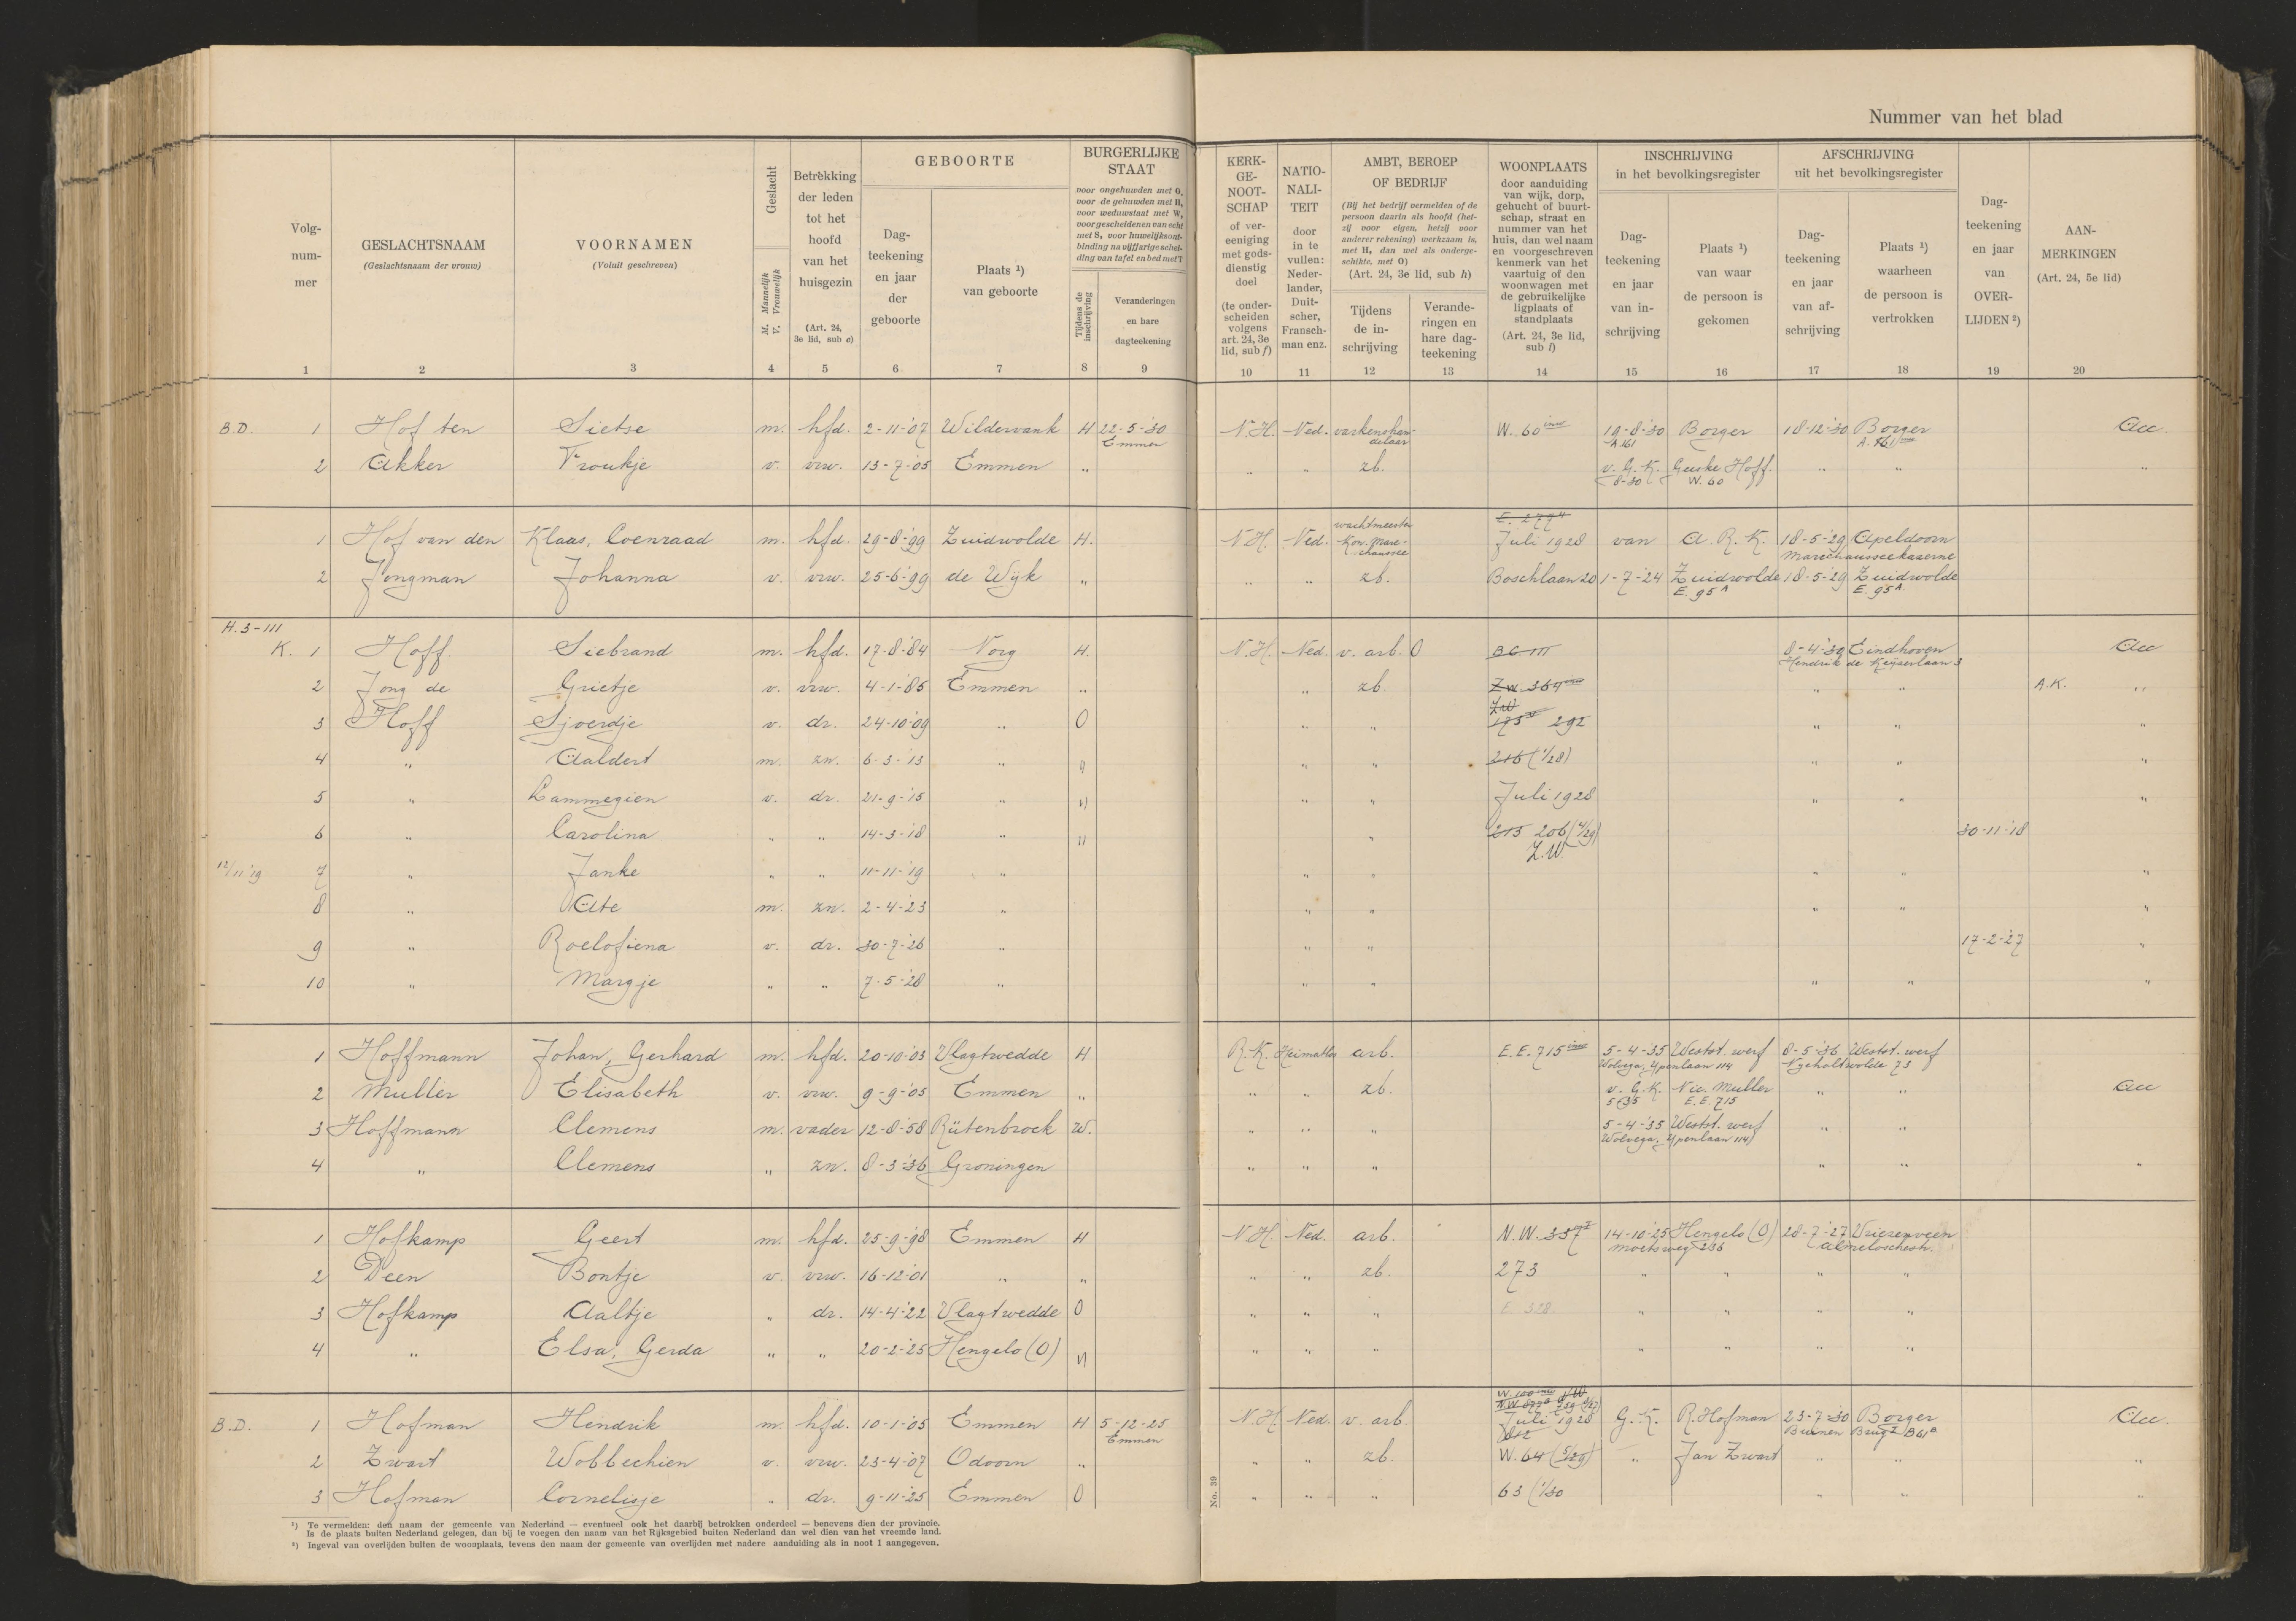 Nummer van het blad
Volg-
num-
mer
GESLACHTSNAAM
(Geslachtsnaam der vrouw)
VOORNAMEN
(Voluit geschreven)
Geslacht
M. Mannelijk
V. Vrouwelijk
Betrekking
der leden
tot het
hoofd
van het
huisgezin
(Art. 24,
3e lid, sub c)
GEBOORTE
Dag-
teekening
en jaar
der
geboorte
Plaats ¹)
van geboorte
BURGERLIJKE
STAAT
voor ongehuwden met O,
voor de gehuwden met H,
voor weduwstaat met W,
voor gescheidenen van echt
met S, voor huwelijksont-
binding na vijfjarige schei-
ding van tafel en bed met T
Tijdens de
inschrijving
Veranderingen
en hare
dagteekening
KERK-
GE-
NOOT-
SCHAP
of ver-
eeniging
met gods-
dienstig
doel
(te onder-
scheiden
volgens
art. 24, 3e
lid, sub f)
NATIO-
NALI-
TEIT
door
in te
vullen:
Neder-
lander,
Duit-
scher,
Fransch-
man enz.
AMBT, BEROEP
OF BEDRIJF
(Bij het bedrijf vermelden of de
persoon daarin als hoofd (het-
zij voor eigen, hetzij voor
anderer rekening) werkzaam is,
met H, dan wel als onderge-
schikte, met O)
(Art. 24, 3e lid, sub h)
Tijdens
de in-
schrijving
Verande-
ringen en
hare dag-
teekening
WOONPLAATS
door aanduiding
van wijk, dorp,
gehucht of buurt-
schap, straat en
nummer van het
huis, dan wel naam
en voorgeschreven
kenmerk van het
vaartuig of den
woonwagen met
de gebruikelijke
ligplaats of
standplaats
(Art. 24, 3e lid,
sub i)
INSCHRIJVING
in het bevolkingsregister
Dag-
teekening
en jaar
van in-
schrijving
Plaats ¹)
van waar
de persoon is
gekomen
AFSCHRIJVING
uit het bevolkingsregister
Dag-
teekening
en jaar
van af-
schrijving
Plaats ¹)
waarheen
de persoon is
vertrokken
Dag-
teekening
en jaar
van
OVER-
LIJDEN ²)
AAN-
MERKINGEN
(Art. 24, 5e lid)
1 2 3 4 5 6 7 8 9 10 11 12 13 14 15 16 17 18 19 20
B.D. 1 Hof ten Sietse m. hfd. 2-11-'07 Wildervank H 22-5-'30 N.H. Ned. varkenshan- W. 60 19-8-'30 Borger 18-12-'30 Borger Acc.
Emmen delaar A. 161 A. 161
2 Akker Froukje v. vrw. 13-7-'05 Emmen " " " zb. v. G.K. Geeske Hoff. " " "
8-30 W. 60
wachtmeester E. 277
1 Hof van den Klaas, Coenraad m. hfd. 29-8-'99 Zuidwolde H. N.H. Ned. Kon. Mare- Juli 1928 van A.R.K. 18-5-'29 Apeldoorn
chaussee Marechausseekazerne
2 Jongman Johanna v. vrw. 25-6-'99 de Wijk " " " zb. Boschlaan 20 1-7-'24 Zuidwolde 18-5-'29 Zuidwolde
E. 95 A E. 95 A.
H. 3-111
K. 1 Hoff. Siebrand m. hfd. 17-8-'84 Norg H. N.H. Ned. v. arb. O BC 111 8-4-'30 Eindhoven Acc
Hendrik de Keyserlaan 3
2 Jong de Grietje v. vrw. 4-1-'85 Emmen " " zb. Z.W. 364 " " A.K. "
3 Hoff Sjoerdje v. dr. 24-10-'09 " O " " Z.W. 175 292 " " "
4 " Aaldert m. zn. 6-3-'13 " " " " 216 (1/28) " " "
5 " Lammegien v. dr. 21-9-'15 " " " " Juli 1928 " " "
6 " Carolina " " 14-3-'18 " " " 215 206 (4/29) 30-11-'18
Z.W.
12/11 '19 7 " Janke " " 11-11-'19 " " " " " "
8 " Ate m. zn. 2-4-'23 " " " " " "
9 " Roelofiena v. dr. 30-7-'26 " " " 17-2-'27 "
10 " Margje " " 7-5-'28 " " " " " "
1 Hoffmann Johan, Gerhard m. hfd. 20-10-'03 Vlagtwedde H R.K. Heimatlos arb. E.E. 715 5-4-'35 Westst. werf 8-5-'36 Westst. werf
Wolvega, Ypenlaan 114 Nyeholtwolde 73
2 Muller Elisabeth v. vrw. 9-9-'05 Emmen " " " zb. v. G.K. Nic. Muller " " Acc
5-35 E.E. 715
3 Hoffmann Clemens m. vader 12-8-'58 Rütenbrock W. " " " 5-4-'35 Westst. werf " "
Wolvega, Ypenlaan 114
4 " Clemens " zn. 8-3-'36 Groningen " " " " " "
1 Hofkamp Geert m. hfd. 25-9-'98 Emmen H N.H. Ned. arb. N.W. 357 14-10-'25 Hengelo (O) 28-7-'27 Vriezenveen
Moetsweg 236 Almeloschestr.
2 Deen Bontje v. vrw. 16-12-'01 " " " " zb. 273 " " " "
3 Hofkamp Aaltje " dr. 14-4-'22 Vlagtwedde O " " " E. 328 " " " "
4 " Elsa, Gerda " " 20-2-'25 Hengelo (O) " " " " " " " "
B.D. 1 Hofman Hendrik m. hfd. 10-1-'05 Emmen H 5-12-25 N.H. Ned. v. arb. Juli 1928 G.K. R. Hofman 23-7-'30 Borger Acc.
Emmen Buinen Brug B 61
2 Zwart Wobbechien v. vrw. 23-4-'07 Odoorn " " " zb. W. 64 (5/29) " Jan Zwart " " "
3 Hofman Cornelisje " dr. 9-11-'25 Emmen O " " " 63 (1/30 " " "
No. 39
¹) Te vermelden: den naam der gemeente van Nederland — eventueel ook het daarbij betrokken onderdeel — benevens dien der provincie.
Is de plaats buiten Nederland gelegen, dan bij te voegen den naam van het Rijksgebied buiten Nederland dan wel dien van het vreemde land.
²) Ingeval van overlijden buiten de woonplaats, tevens den naam der gemeente van overlijden met nadere aanduiding als in noot 1 aangegeven.